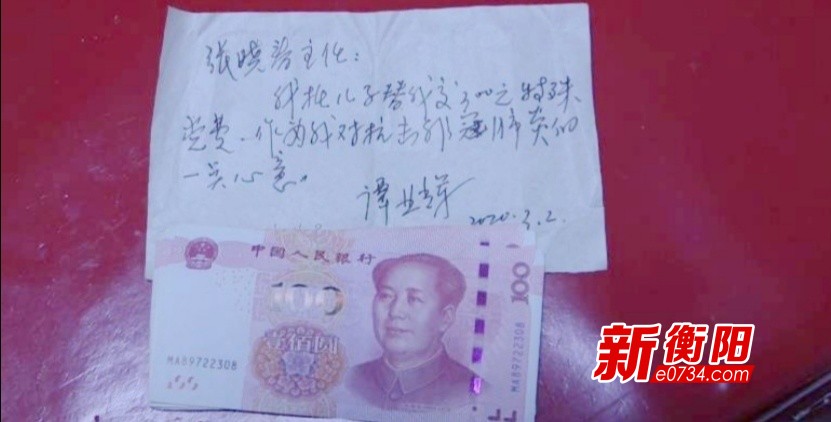 张晓芬主任：
我托儿子替我交300元特殊
党费，作为我对抗击新冠肺炎的
一点心意。
谭
2020.3.2.
中国人民银行
100
壹佰圆
100
MA89722308
MA89722308
新衡阳
e0734.com